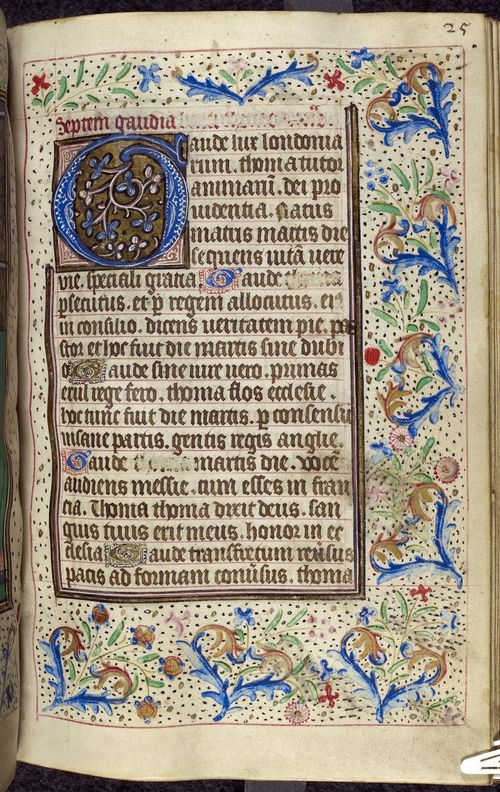 25
Septem gaudia
Gaude lux londonia
rum. thoma tutor
animarū. dei pro
uidentia. Natus
matus martis die
sequens uitā uere
vie. speciali gratia. Gaude
psecutus. et p regem allocutus. ei
in consilio. dicens ueritatem pie. pas
tor et hoc fuit die martis sine dubi
o. Gaude sine iure uero. primas
exul rege fero. thoma flos ecclesie.
hoc tunc fuit die martis. p consensū
insane partis. gentis regis anglie.
Gaude martis die. vocē
audiens messie. cum esses in fran
cia. Thoma thoma dixit deus. san
guis tuus erit meus. honor in ec
clesia. Gaude transfretum reūsus
pacis ad formam conūsus. thoma